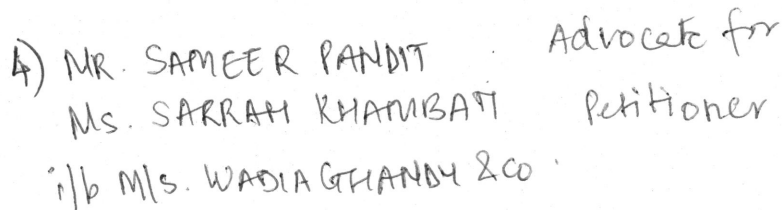 4) MR. SAMEER PANDIT Advocate for
Ms. SARRAH KHAMBATI Petitioner
i/b M/s. WADIA GHANDY & CO.